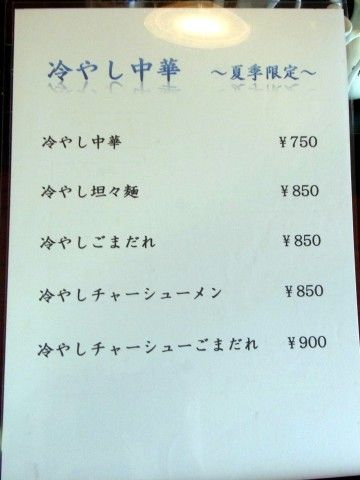 冷やし中華 ～夏季限定～
冷やし中華 ¥750
冷やし坦々麺 ¥850
冷やしごまだれ ¥850
冷やしチャーシューメン ¥850
冷やしチャーシューごまだれ ¥900